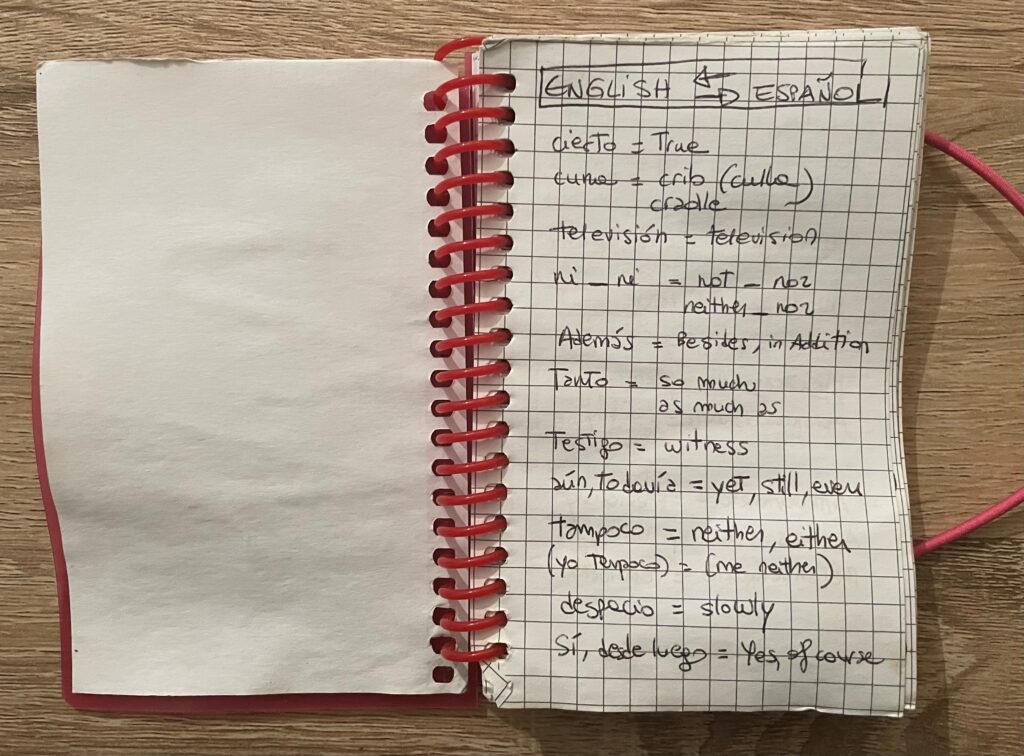 ENGLISH ⇆ ESPAÑOL
cierto = True
cuna = crib (culla)
cradle
televisión = television
ni _ ni = not _ noz
neither _ noz
Además = Besides, in Addition
Tanto = so much
as much as
Testigo = witness
aún, Todavía = yet, still, even
tampoco = neither, either
(yo Tampoco) = (me neither)
despacio = slowly
Sí, desde luego = Yes, of course